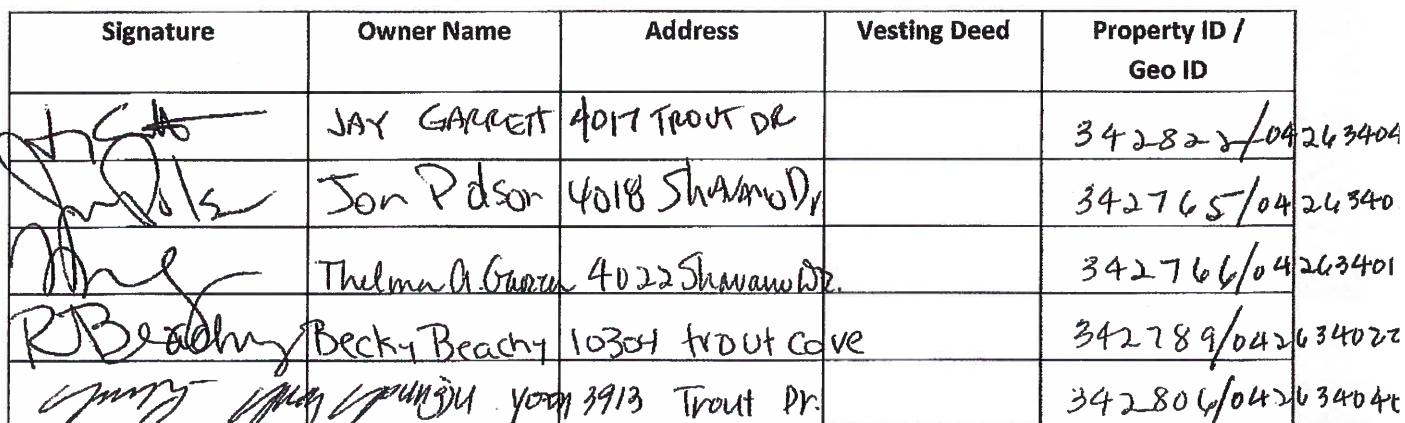 Signature Owner Name Address Vesting Deed Property ID / Geo ID
JAY GARRETT 4017 TROUT DR 342822/04263404
Jon Polson 4018 Shavano Dr 342765/0426340
Thelma A. 4022 Shavano Dr. 342766/04263401
RJBeachy Becky Beachy 10304 trout cove 342789/042634022
Youngju Yoon 3913 Trout Dr. 342806/04263404